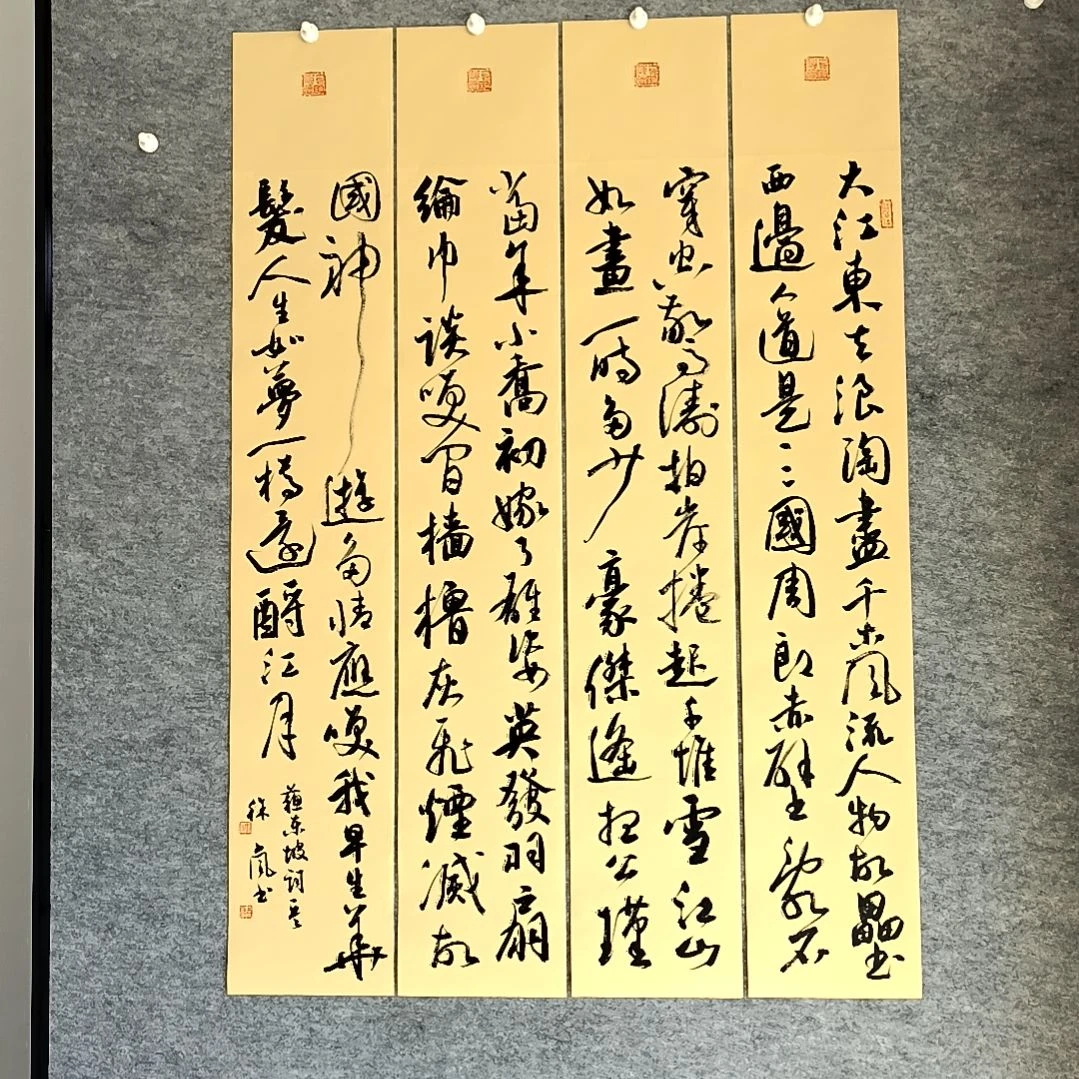 大江東去浪淘盡千古風流人物故壘
西邊人道是三國周郎赤壁亂石
穿空驚濤拍岸捲起千堆雪江山
如畫一時多少豪傑遙想公瑾
當年小喬初嫁了雄姿英發羽扇
綸巾談笑間檣櫓灰飛煙滅故
國神遊多情應笑我早生華
髮人生如夢一樽還酹江月
蘇東坡詞意
徐嵐书